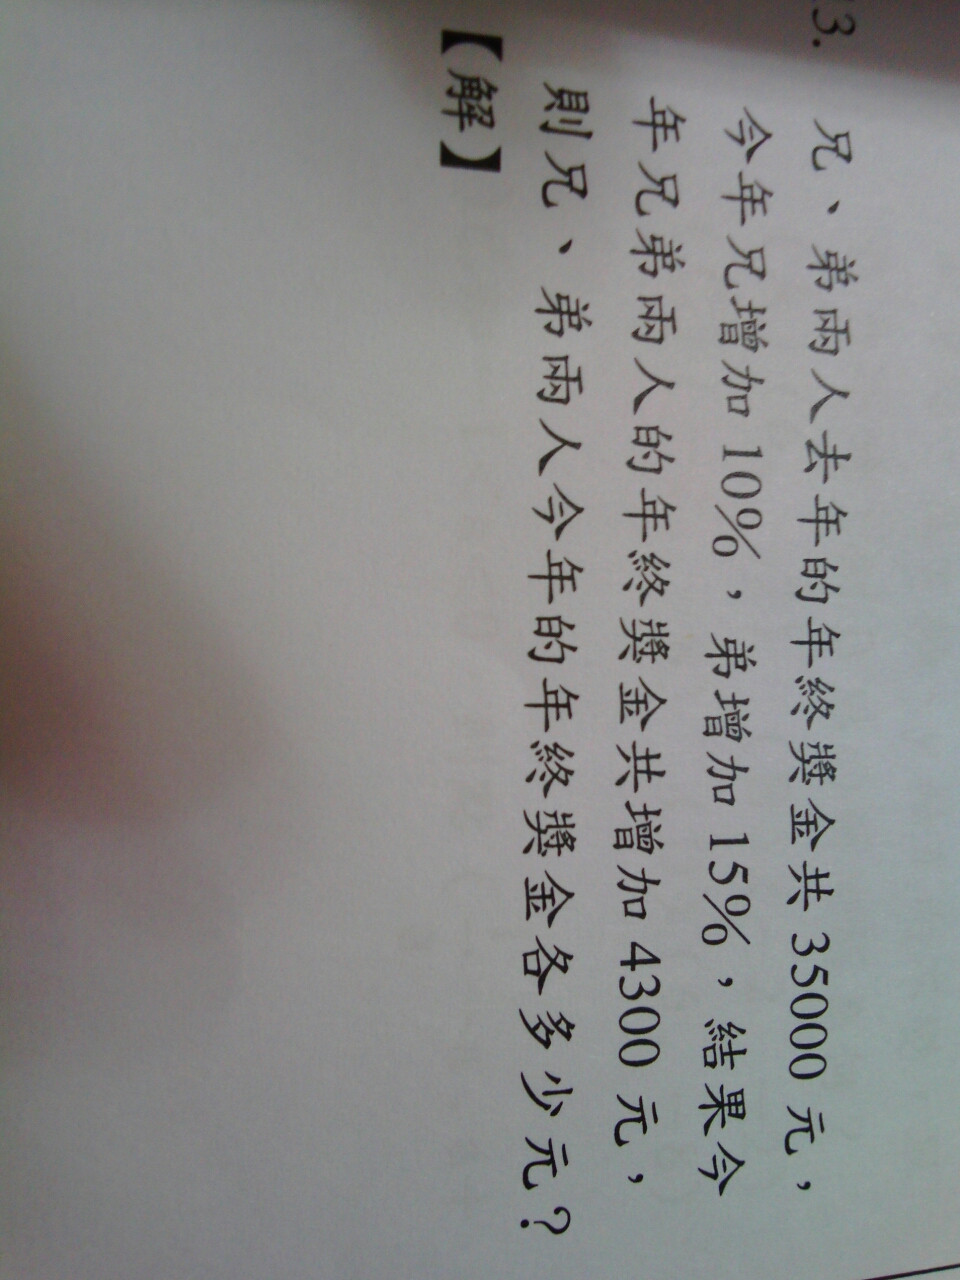 3.
兄、弟兩人去年的年終獎金共 35000 元，
今年兄增加 10%，弟增加 15%，結果今
年兄弟兩人的年終獎金共增加 4300 元，
則兄、弟兩人今年的年終獎金各多少元？
【解】